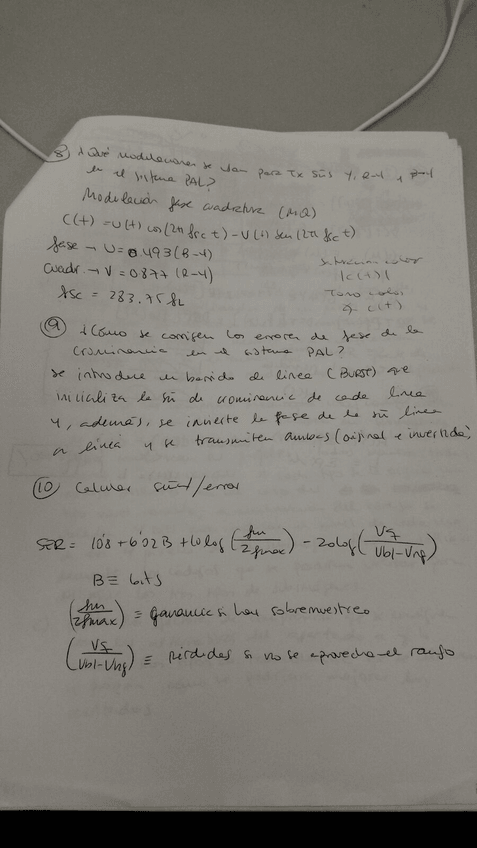 8) ¿Qué modulaciones se usan para Tx sñs Y, R-Y y B-Y
en el sistema PAL?
Modulación fase cuadratura (MQ)
C(t) = U(t) cos(2π fsc t) - V(t) sen(2π fsc t)
fase → U = 0.493 (B-Y)
cuadr. → V = 0.877 (R-Y)
fsc = 283,75 fL
Saturación color
|C(t)|
Tono color
C(t)
9) ¿Cómo se corrigen los errores de fase de la
crominancia en el sistema PAL?
se introduce en barrido de línea (BURST) que
inicializa la sñ de crominancia de cada línea
y, además, se invierte la fase de la sñ línea
a línea y se transmiten ambas (original e invertida)
10) Calcular señal/error
SER = 10'8 + 6'02 B + 10 log (fm/2fmax) - 20 log (Vq/Vbl-Vng)
B ≡ bits
(fm/2fmax) ≡ ganancia si hay sobremuestreo
(Vq/Vbl-Vng) ≡ pérdidas si no se aprovecha el rango